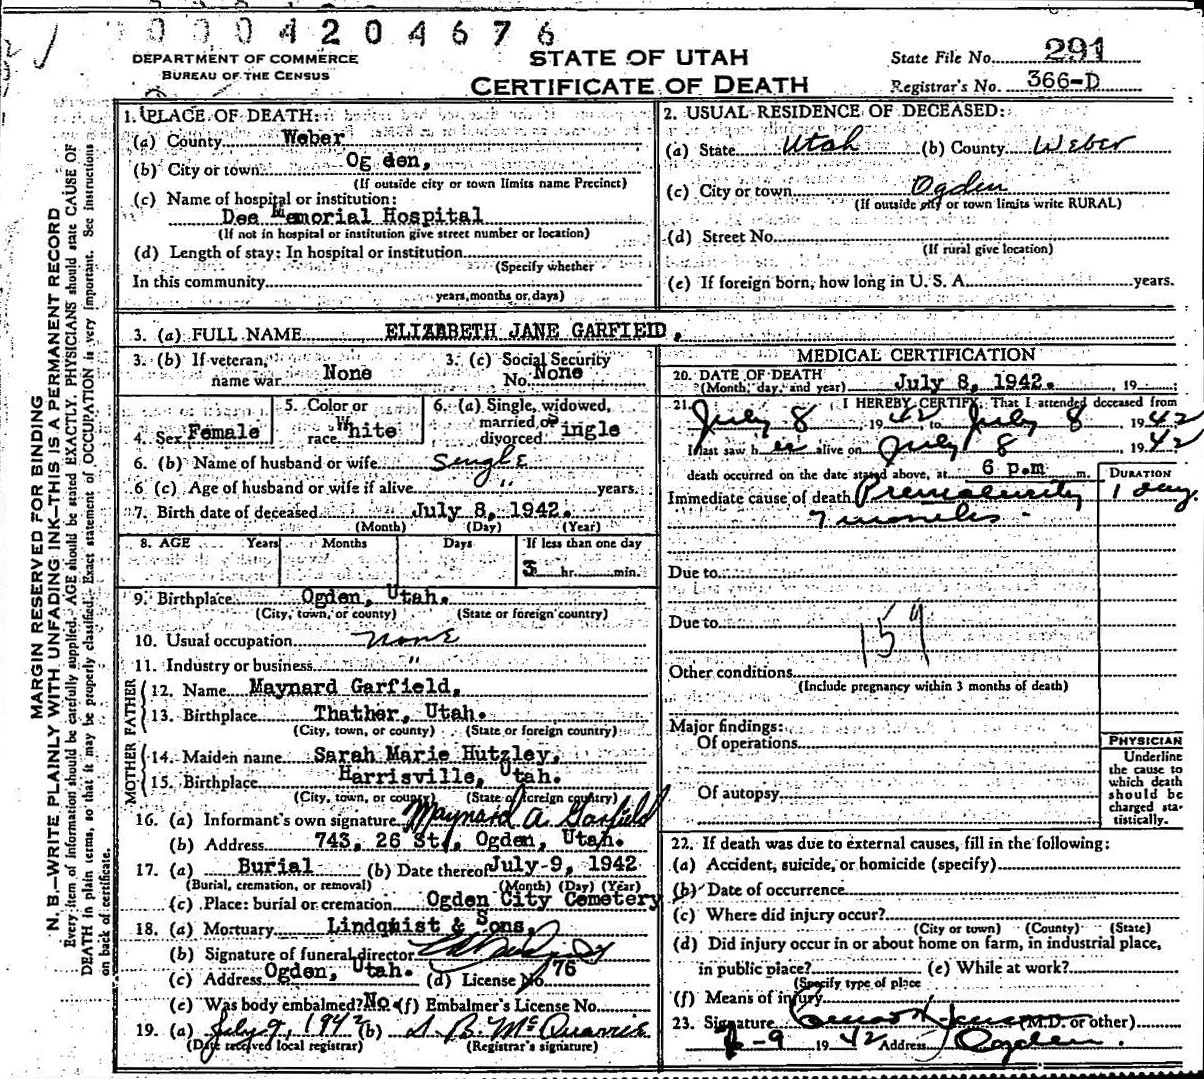 0004204676
DEPARTMENT OF COMMERCE
BUREAU OF THE CENSUS
STATE OF UTAH
CERTIFICATE OF DEATH
State File No. 291
Registrar's No. 366-D
MARGIN RESERVED FOR BINDING
N. B.—WRITE PLAINLY WITH UNFADING INK—THIS IS A PERMANENT RECORD
Every item of information should be carefully supplied. AGE should be stated EXACTLY. PHYSICIANS should state CAUSE OF
DEATH in plain terms, so that it may be properly classified. Exact statement of OCCUPATION is very important. See instructions
on back of certificate.
1. PLACE OF DEATH:
(a) County Weber
(b) City or town Og den,
(If outside city or town limits name Precinct)
(c) Name of hospital or institution:
Dee Memorial Hospital
(If not in hospital or institution give street number or location)
(d) Length of stay: In hospital or institution
(Specify whether
In this community
years, months or days)
2. USUAL RESIDENCE OF DECEASED:
(a) State Utah (b) County Weber
(c) City or town Ogden
(If outside city or town limits write RURAL)
(d) Street No.
(If rural give location)
(e) If foreign born, how long in U. S. A. years.
3. (a) FULL NAME ELIZABETH JANE GARFIELD,
3. (b) If veteran, name war None
3. (c) Social Security No. None
4. Sex Female
5. Color or race White
6. (a) Single, widowed, married or divorced Single
6. (b) Name of husband or wife Single
6 (c) Age of husband or wife if alive " years.
7. Birth date of deceased July 8, 1942.
(Month) (Day) (Year)
8. AGE Years Months Days If less than one day
3 hr. min.
9. Birthplace Ogden, Utah.
(City, town, or county) (State or foreign country)
10. Usual occupation none
11. Industry or business "
FATHER
12. Name Maynard Garfield,
13. Birthplace Thather, Utah.
(City, town, or county) (State or foreign country)
MOTHER
14. Maiden name Sarah Marie Hutzley,
15. Birthplace Harrisville, Utah.
(City, town, or county) (State or foreign country)
16. (a) Informant's own signature Maynard A. Garfield
(b) Address 743, 26 St, Ogden, Utah.
17. (a) Burial (b) Date thereof July-9, 1942
(Burial, cremation, or removal) (Month) (Day) (Year)
(c) Place: burial or cremation Ogden City Cemetery
18. (a) Mortuary Lindquist & Sons,
(b) Signature of funeral director
(c) Address Ogden, Utah. (d) License No. 76
(e) Was body embalmed? No. (f) Embalmer's License No.
19. (a) July 9, 1942 (b) B. McQuarrie
(Date received local registrar) (Registrar's signature)
MEDICAL CERTIFICATION
20. DATE OF DEATH
(Month, day, and year) July 8, 1942. , 19 ;
21. I HEREBY CERTIFY, That I attended deceased from
July 8, 1942, to July 8 1942
I last saw her alive on July 8, 1942
death occurred on the date stated above, at 6 p.m m.
DURATION
Immediate cause of death Prematurity 1 day.
7 months -
Due to
Due to
159
Other conditions
(Include pregnancy within 3 months of death)
Major findings:
Of operations
Of autopsy
PHYSICIAN
Underline
the cause to
which death
should be
charged sta-
tistically.
22. If death was due to external causes, fill in the following:
(a) Accident, suicide, or homicide (specify)
(b) Date of occurrence
(c) Where did injury occur?
(City or town) (County) (State)
(d) Did injury occur in or about home on farm, in industrial place,
in public place? (e) While at work?
(Specify type of place
(f) Means of injury
23. Signature (M.D. or other)
7-9 1942 Address Ogden.